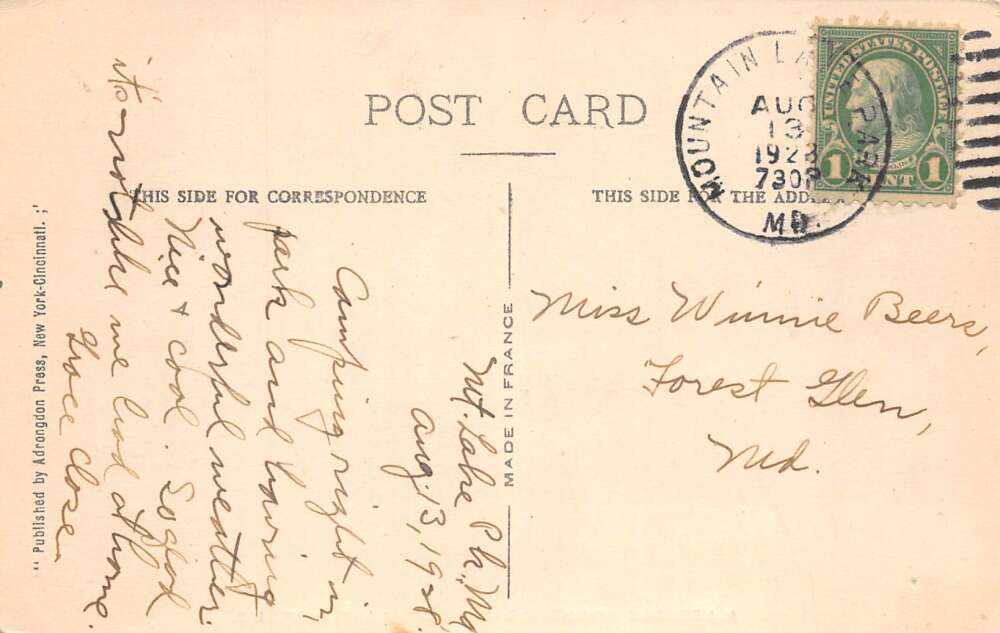 POST CARD
THIS SIDE FOR CORRESPONDENCE
THIS SIDE FOR THE ADD
MOUNTAIN LAKE PARK
AUG
13
1928
730P
MD.
UNITED STATES POSTAGE
1 CENT 1
Mt. Lake Pk., Md
Aug. 13, 1928.
Camping right in
park and having
wonderful weather.
Nice & cool. So glad
it's not like we had at home.
Grace Close
MADE IN FRANCE
Miss Winnie Beers,
Forest Glen,
Md.
" Published by Adrongdon Press, New York-Cincinnati. ;'